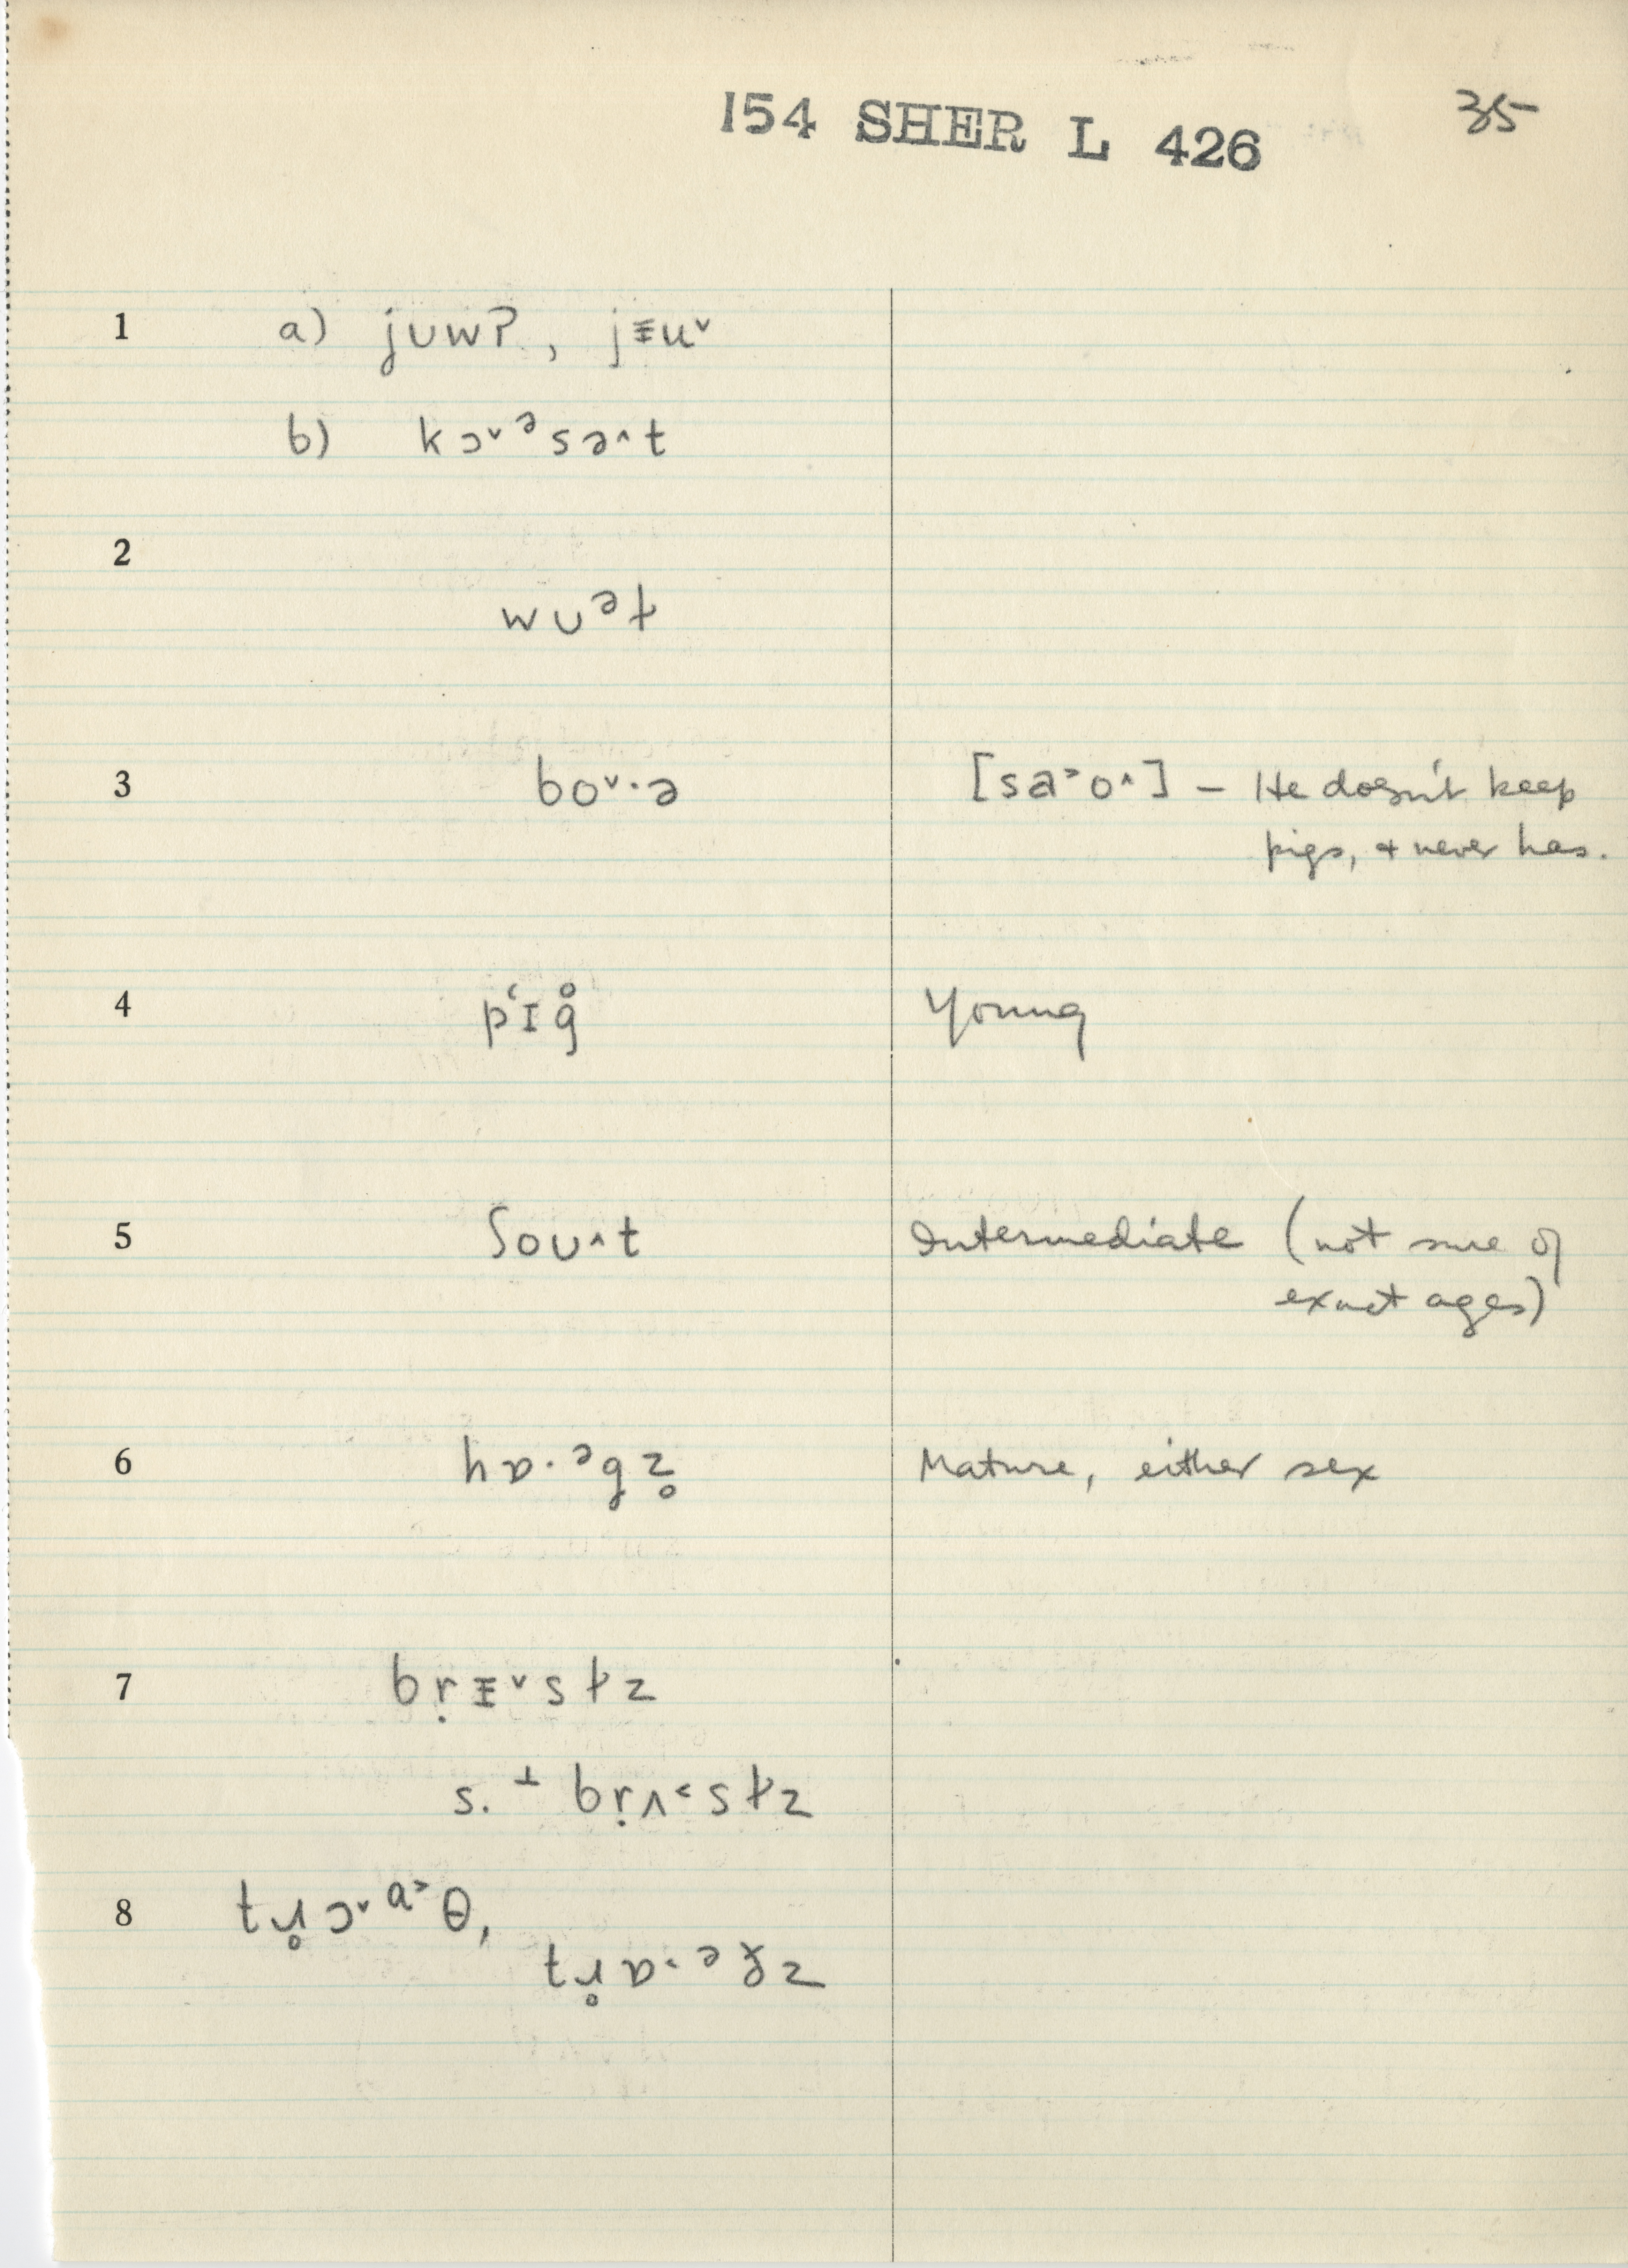 154 SHER L 426 35
1 a) juwʔ, jᵻu˅
b) kɔ˅ᵊsə˄t
2
wuᵊt̬
3 bo˅·ə [sa˃o˄] – He doesn't keep
pigs, + never has.
4 pʻɪg̊ Young
5 ʃoʊ˄t Intermediate (not sure of
exact ages)
6 hɒ·ᵊgz̥ Mature, either sex
7 bṛᵻ˅st̬z
s. ⊥ bṛʌ˂st̬z
8 tɹ̥ɔ˅ᵅ˃θ,
tɹ̥ɒ·ᵊðz